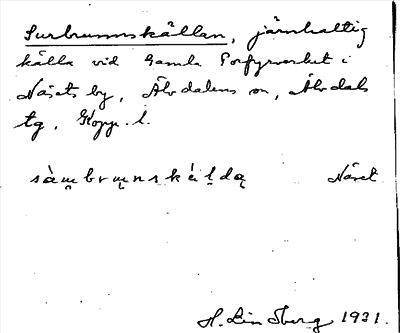 Surbrunnskällan, järnhaltig
källa vid Gamla Porfyrverket i
Näsets by, Älvdalens sn, Älvdals
tg, Kopp. l.
Näset
H. Lindberg 1931.